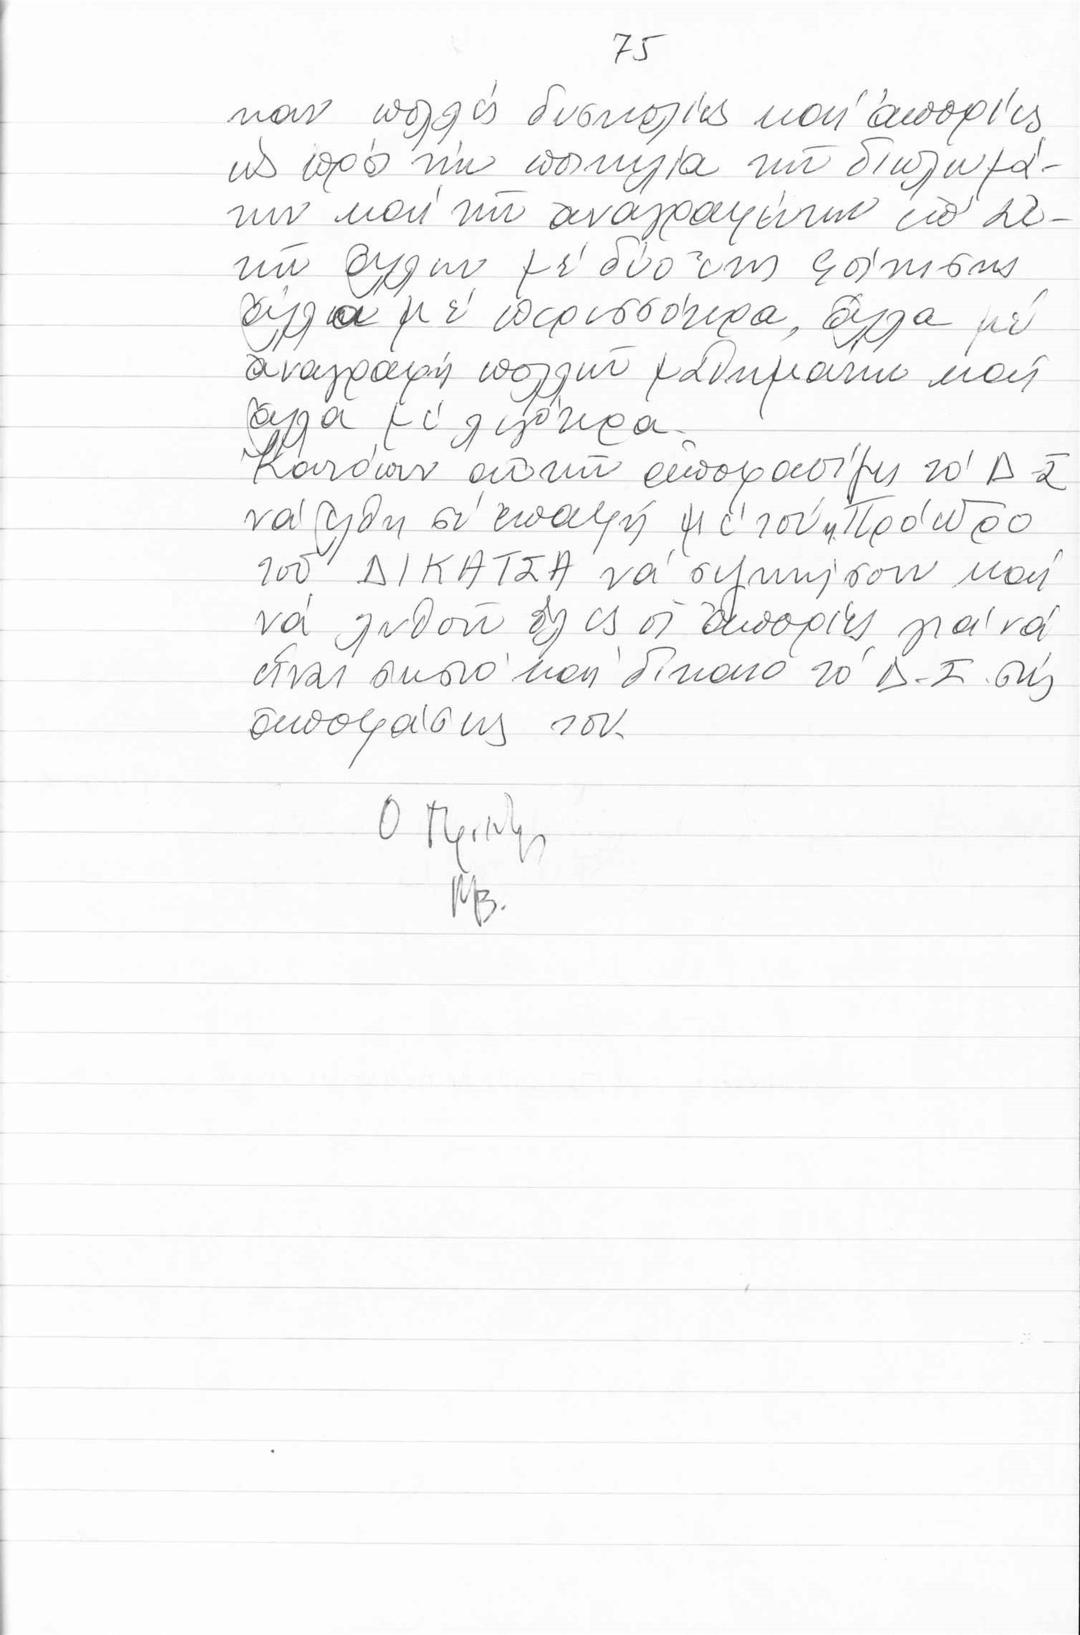 75
καν πολλές δυσκολίες καί ἀπορίες
ὡς πρός τήν ποικιλία τῶν διπλωμά-
των καί τῶν ἀναγραφέντων ἐπ' αὐ-
τῶν ἄλλων μέ δύο ἔτη φοίτησης
ἄλλα μέ περισσότερα, ἄλλα μέ
ἀναγραφή πολλῶν μαθημάτων καί
ἄλλα μέ λιγότερα.
Κατόπιν αὐτῶν ἀποφασίζει τό Δ-Σ
νά ἔλθη σέ ἐπαφή μέ τόν Πρόεδρο
τοῦ ΔΙΚΑΤΣΑ νά συζητήσουν καί
νά λυθοῦν ὅλες οἱ ἀπορίες γιά νά
εἶναι σωστό καί δίκαιο τό Δ-Σ στίς
ἀποφάσεις του.
Ο